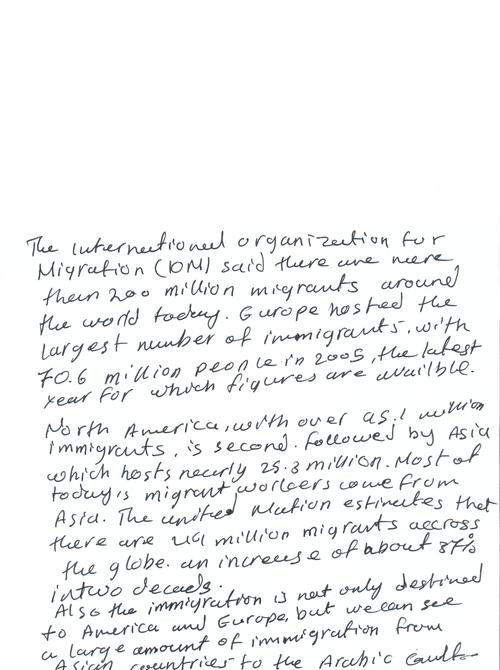 The International organization for
Migration (IOM) said there are more
than 200 million migrants around
the world today. Europe hosted the
largest number of immigrants, with
70.6 million people in 2005, the latest
year for which figures are availble.
North America, with over 45.1 million
immigrants, is second. Followed by Asia
which hosts nearly 25.3 million. Most of
today's migrant workers come from
Asia. The united Nation estimates that
there are 214 million migrants accross
the globe. an increase of about 37%
in two decads.
Also the immigration is not only destined
to America and Europe, but we can see
a large amount of immigration from
Asian countries to the Arabic